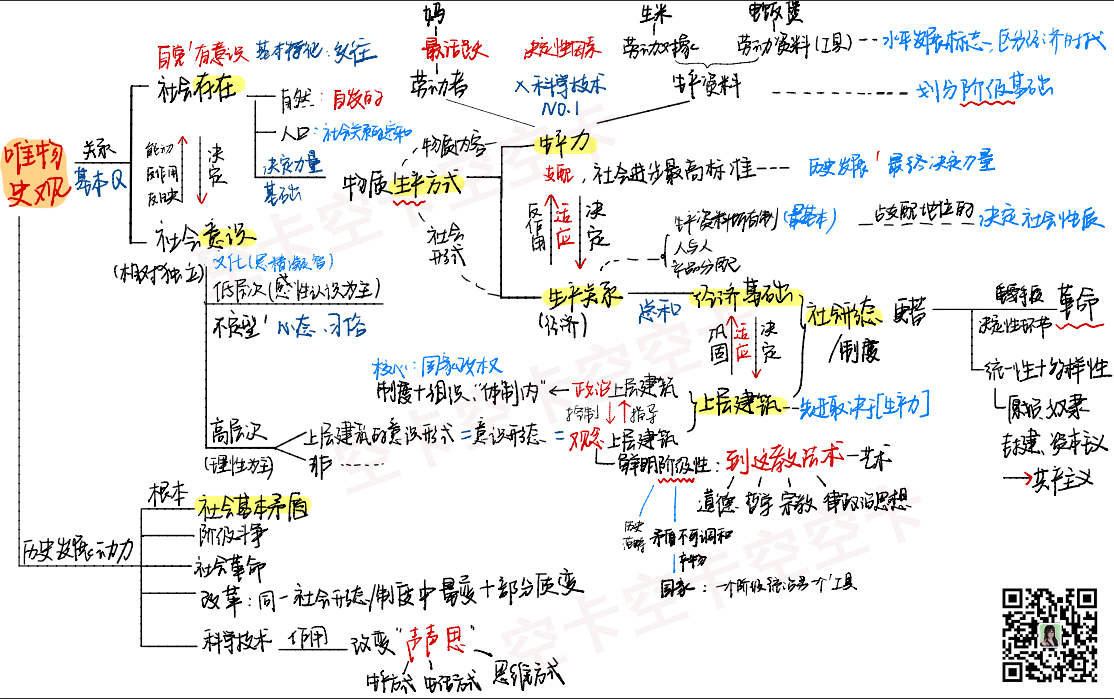 妈
生米
电饭煲
自觉'有意识 基本特征:交往
最活跃
决定性因素
劳动对象
劳动资料(工具)
水平发展标志、区分经济时代
社会存在
劳动者
×科学技术
NO.1
生产资料
划分阶级基础
自然:自发的
人口:
唯物
史观
关系
基本Q
能动
反作用
反映
决定
决定力量
基础
物质生产方式
物质内容
生产力
支配,社会进步最高标准
历史发展'最终决定力量
社会
形式
反作用
适应
决定
生产资料所有制(最基本)
占支配地位的
决定社会性质
人与人
产品分配
社会意识
(相对独立)
低层次(感性认识为主)
不定型'心态、习俗
生产关系
(经济)
总和
经济基础
社会形态
/制度
更替
巩固
适应
决定
革命
决定性环节
统一性+多样性
原始 奴隶
封建、资本主义
→共产主义
核心:国家政权
制度+组织,"体制内"
←政治上层建筑
控制
指导
上层建筑
先进取决于[生产力]
高层次
(理性为主)
上层建筑的意识形式=意识形态=观念上层建筑
非
鲜明阶级性:到这教法术—艺术
道德 哲学 宗教 律政治思想
矛盾不可调和
产物
国家:一个阶级统治另一个'工具
历史发展动力
根本
社会基本矛盾
阶级斗争
社会革命
改革:同一社会形态/制度中量变+部分质变
科学技术 作用 改变"声声思"
生产方式 生活方式 思维方式
空卡空卡空卡
空卡空卡空卡
空卡空卡空卡